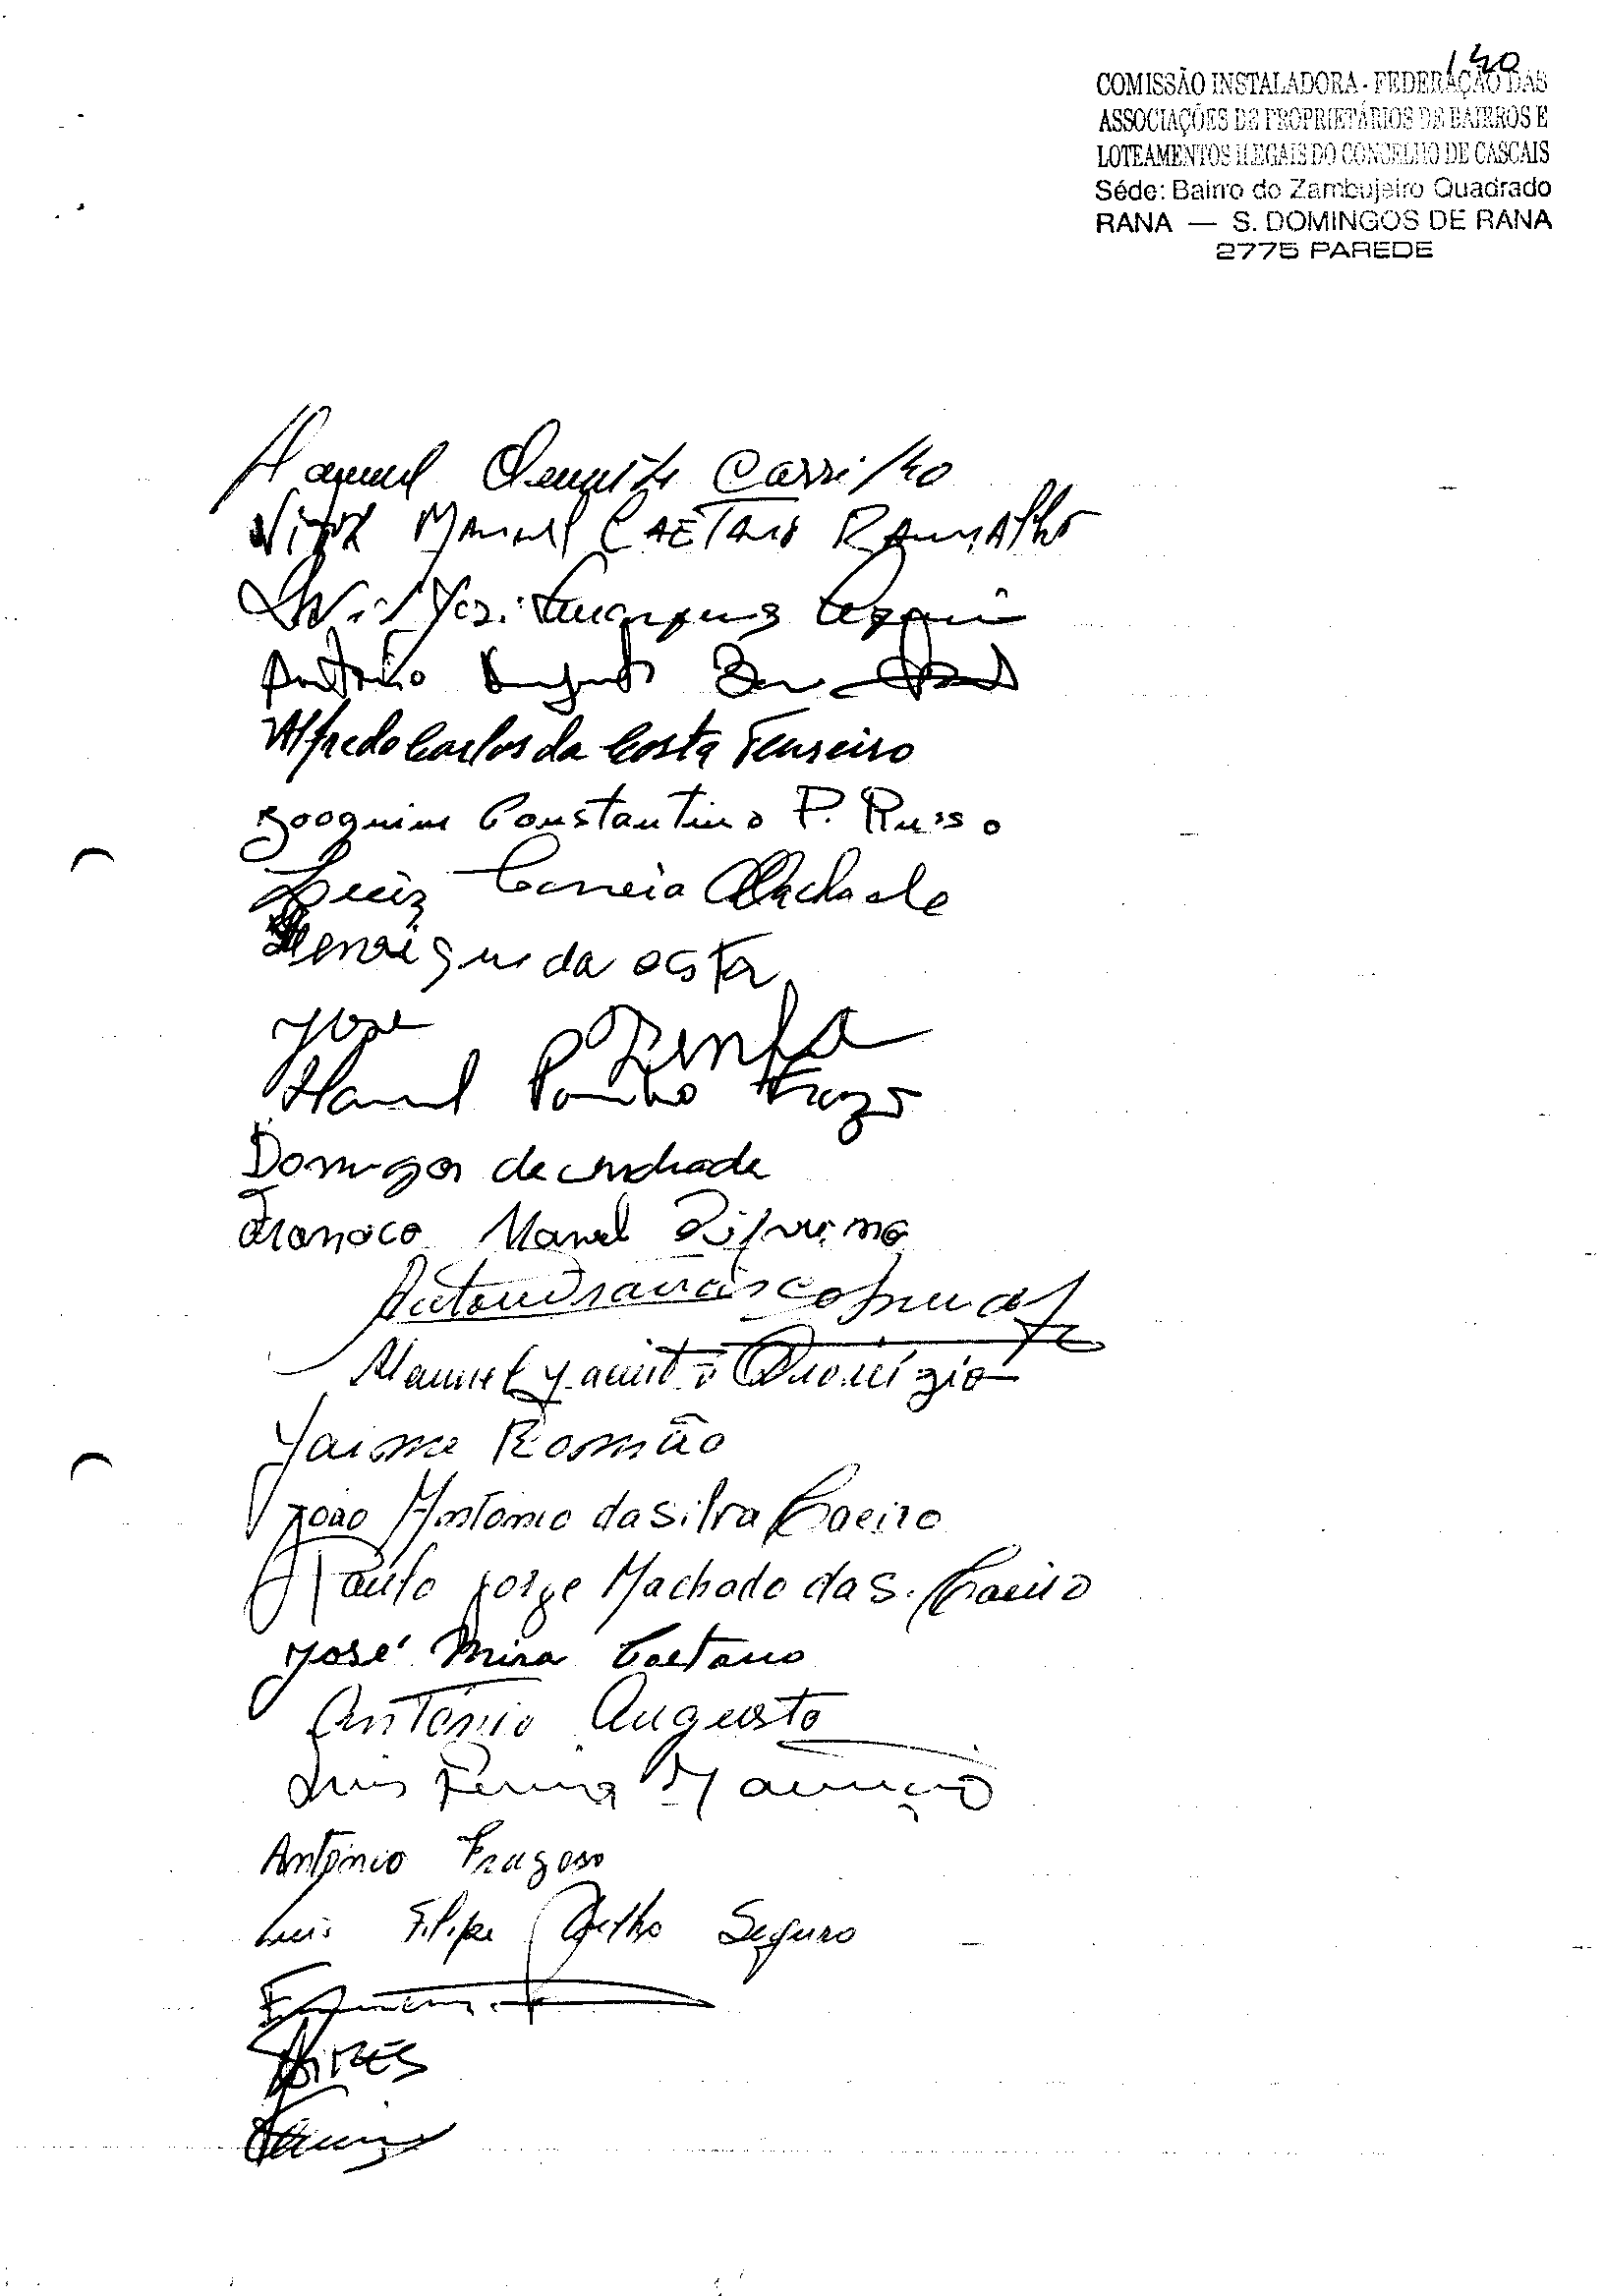 140
COMISSÃO INSTALADORA - FEDERAÇÃO DAS
ASSOCIAÇÕES DE PROPRIETÁRIOS DE BAIRROS E
LOTEAMENTOS ILEGAIS DO CONCELHO DE CASCAIS
Séde: Bairro do Zambujeiro Quadrado
RANA — S. DOMINGOS DE RANA
2775 PAREDE
Manuel Carrilho
Vitor Manuel CAETANO RAMALHO
Luis José Marques
António Augusto
Alfredo Carlos da Costa Ferreiro
Joaquim Constantino P. Russo
Luiz Correia Machado
Henrique da Costa
José
Manuel Frazão
Domingos de Andrade
Manuel
António Francisco
Manuel Jacinto Dionízio
Jaime Romão
João António da Silva Caeiro
Paulo Jorge Machado da S. Caeiro
José Mira Caetano
António Augusto
Luis Maurício
António Fragoso
Luis Filipe Coelho Seguro
AIRES